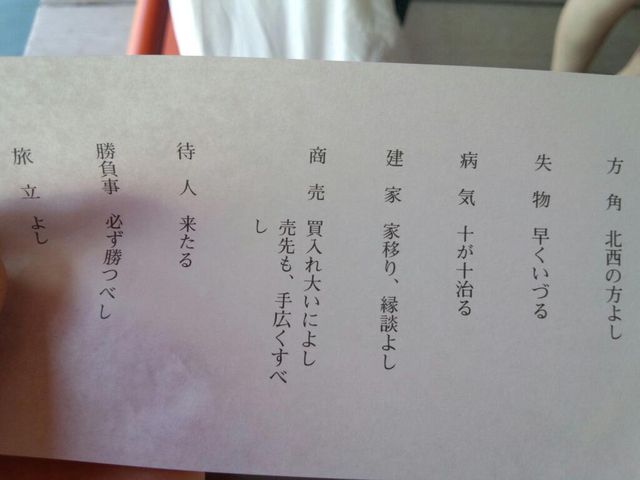 方角 北西の方よし
失物 早くいづる
病気 十が十治る
建家 家移り、縁談よし
商売 買入れ大いによし
売先も、手広くすべ
し
待人 来たる
勝負事 必ず勝つべし
旅立 よし